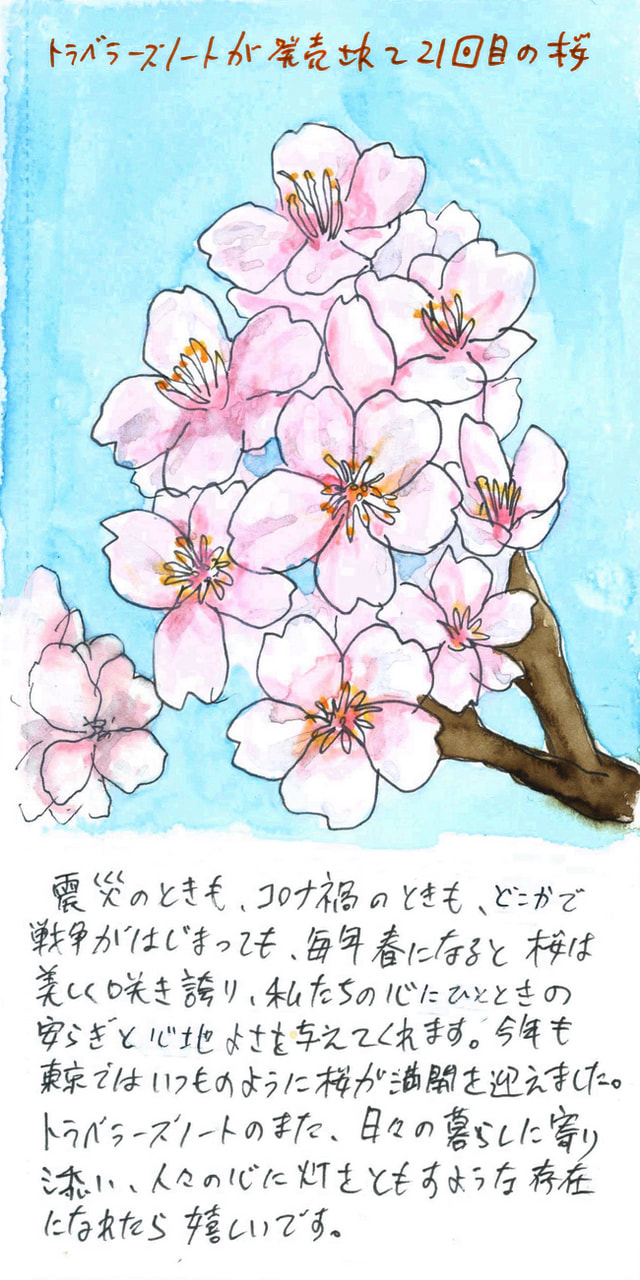 トラベラーズノートが発売されて21回目の桜
震災のときも、コロナ禍のときも、どこかで
戦争がはじまっても、毎年春になると桜は
美しく咲き誇り、私たちの心にひとときの
安らぎと心地よさを与えてくれます。今年も
東京ではいつものように桜が満開を迎えました。
トラベラーズノートのまた、日々の暮らしに寄り
添い、人々の心に灯をともすような存在
になれたら嬉しいです。